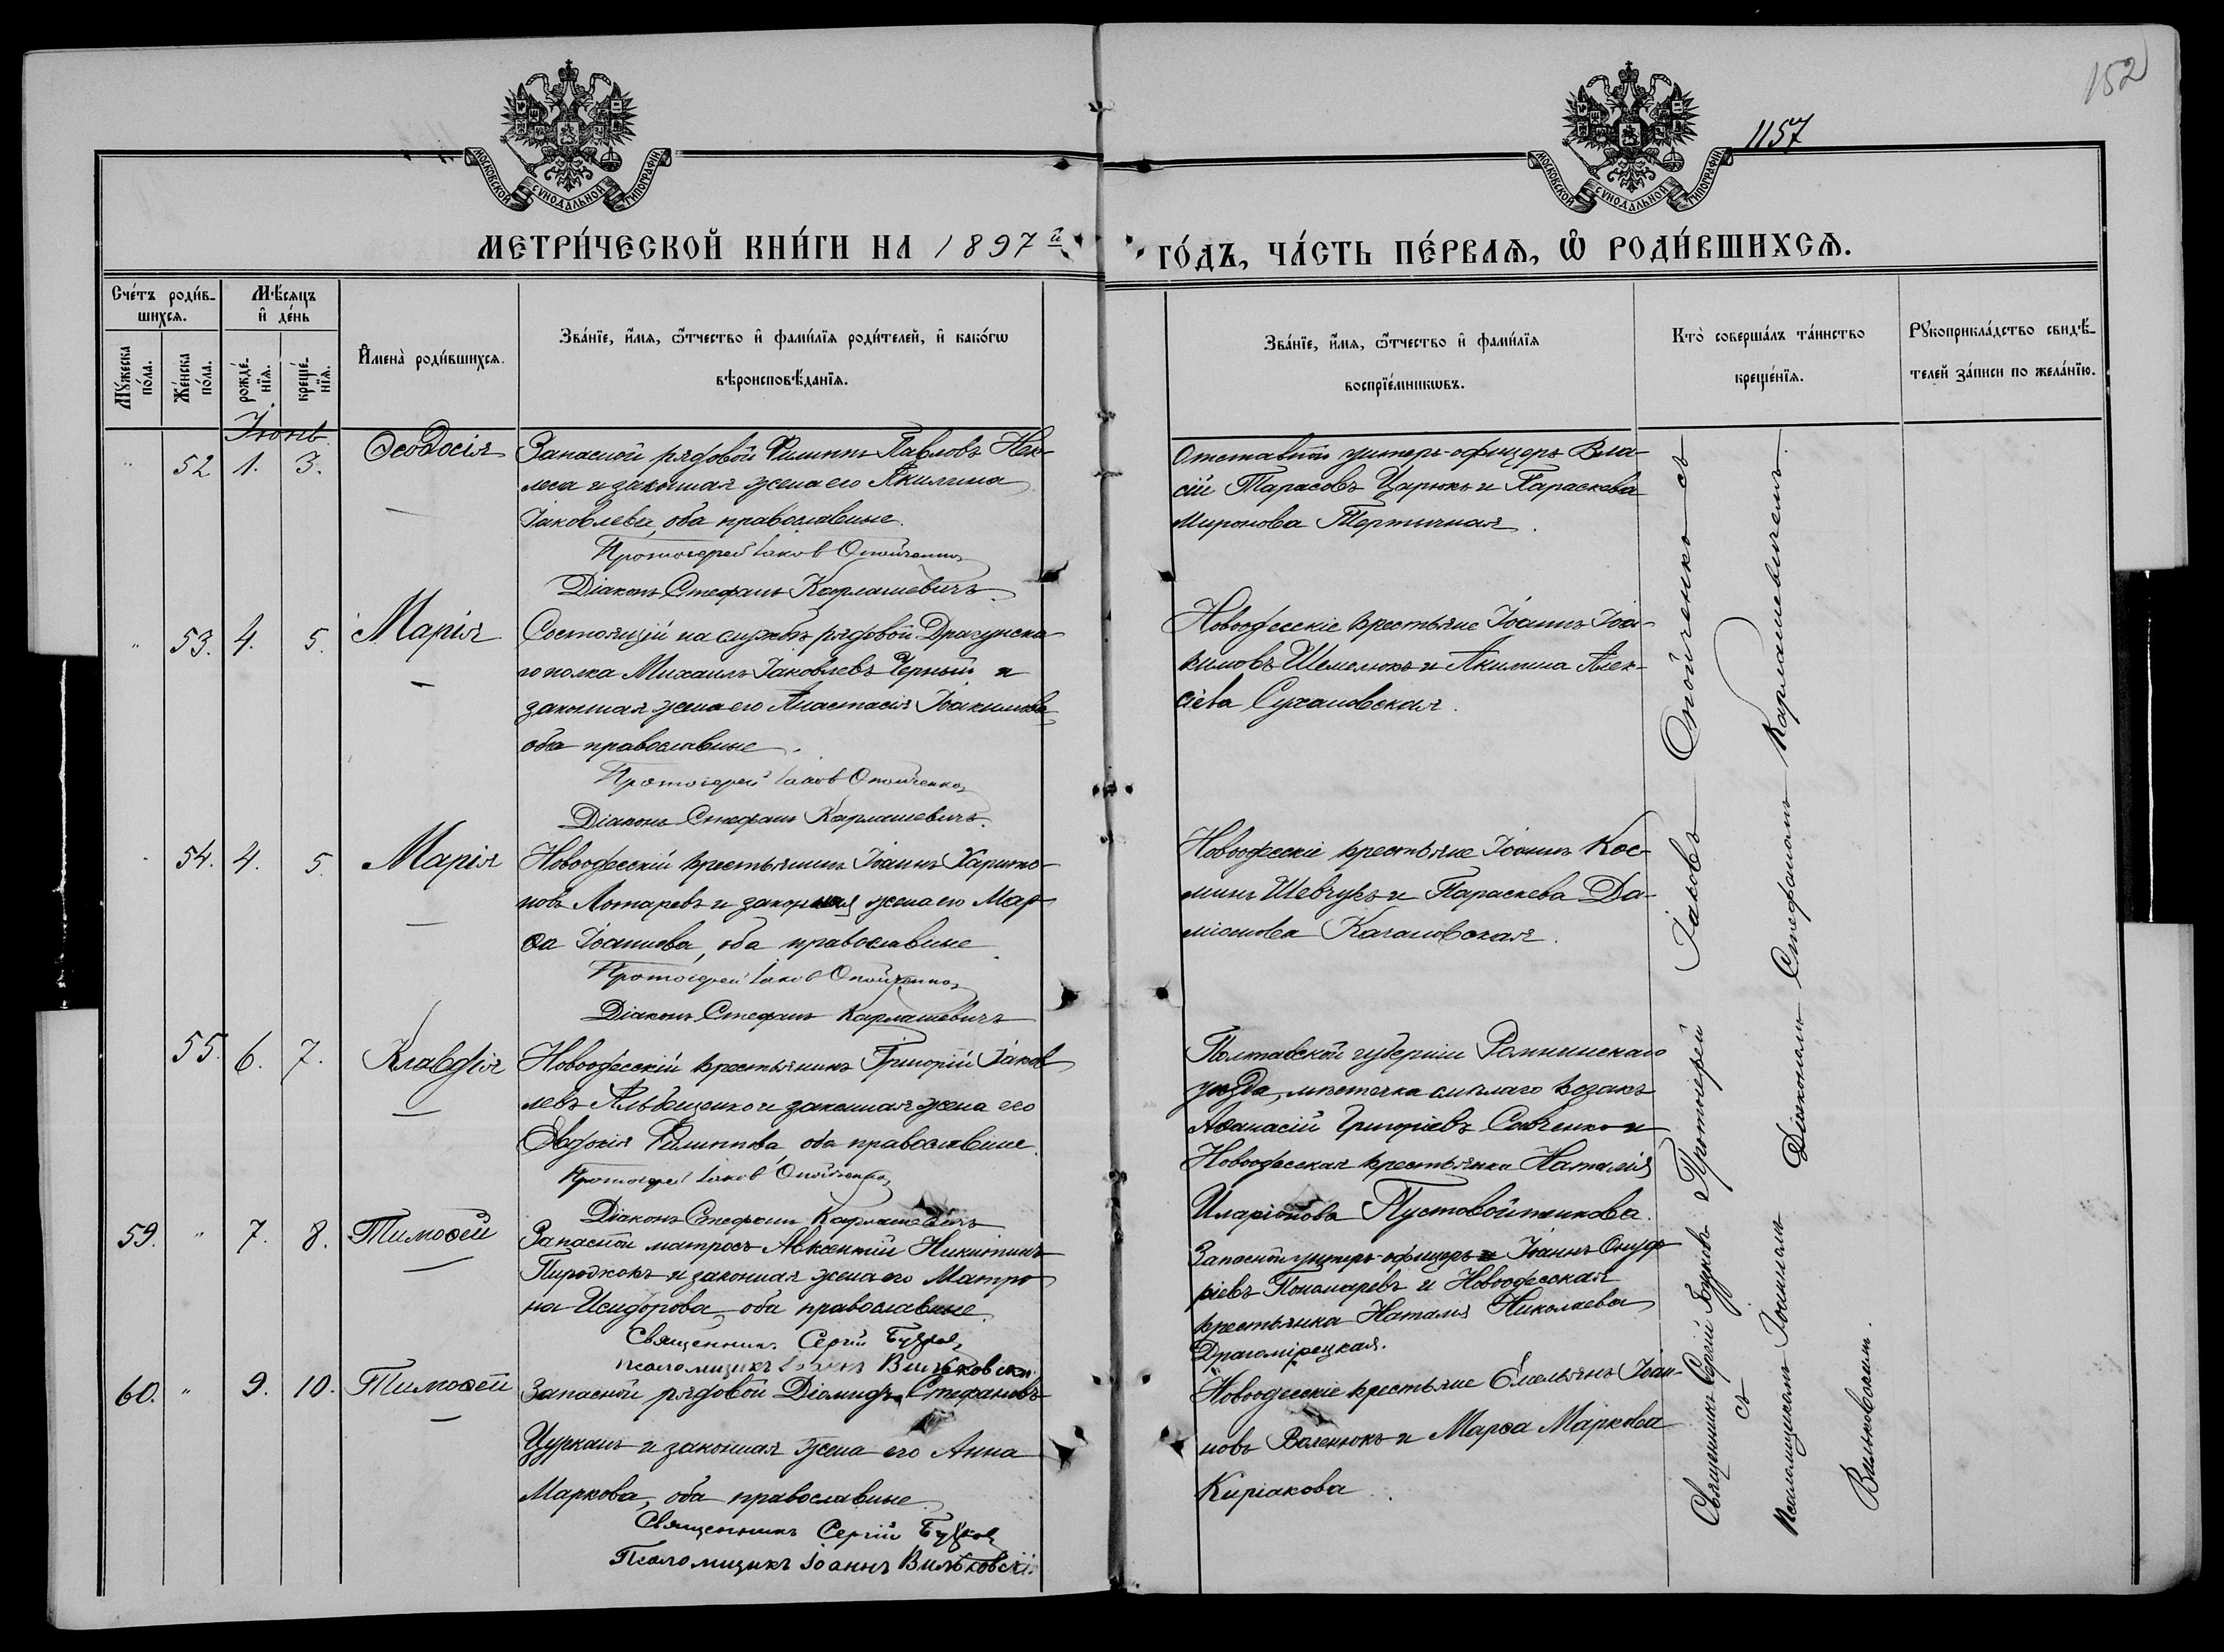 152
1157
МОСКОВСКОЙ СѴНОДАЛЬНОЙ ТИПОГРАФІИ
МОСКОВСКОЙ СѴНОДАЛЬНОЙ ТИПОГРАФІИ
МЕТРИ́ЧЕСКОЙ КНИ́ГИ НА 1897й
ГО́ДЪ, ЧА́СТЬ ПЕ́РВАѦ, Ѿ РОДИ́ВШИХСѦ.
Сче́тъ роди́в-
шихсѧ.
Мꙋ́жеска по́ла.
Же́нска по́ла.
Мѣ́сѧцъ и҆ де́нь
рожде́-нїѧ.
креще́-нїѧ.
И҆мена̀ роди́вшихсѧ.
Зва́нїе, и҆́мѧ, ѻ҆́тчество и҆ фами́лїѧ роди́телей, и҆ како́гѡ
вѣроисповѣ́данїѧ.
Зва́нїе, и҆́мѧ, ѻ҆́тчество и҆ фами́лїѧ
воспрїе́мникѡвъ.
Кто̀ соверша́лъ та́инство
креще́нїѧ.
Рꙋкоприкла́дство свидѣ́-
телей за́писи по жела́нїю.
Іюнь
" 52 1. 3. Ѳеодосія
Запасной рядовой Филиппъ Павловъ
и законная жена его Акилина
Іаковлева, оба православные.
Протоіерей Іаков Опойченко
Діаконъ Стефанъ Карлашевичъ.
Отставной унтеръ-офицеръ Вла-
сій Тарасовъ Царюкъ и Параскева
Миронова Тертычная.
" 53. 4. 5. Марія
Состоящій на службѣ рядовой Драгунска-
го полка Михаилъ Іаковлевъ Черный и
законная жена его Анастасія Іоакимова
оба православные.
Протоіерей Іаков Опойченко
Діаконъ Стефанъ Карлашевичъ.
Новоодесскіе крестьяне Іоаннъ Іоа-
кимовъ Шемелюкъ и Акилина Алек-
сіева Сухановская.
54. 4. 5. Марія
Новоодесскій крестьянинъ Іоаннъ Харито-
новъ Лотаревъ и законная жена его Мар-
ѳа Іоаннова, оба православные.
Протоіерей Іаков Опойченко
Діаконъ Стефанъ Карлашевичъ
Новоодесскіе крестьяне Іоаннъ Кос-
минъ Шевчукъ и Параскева Да-
міанова Качановская.
55. 6. 7. Клавдія
Новоодесскій крестьянинъ Григорій Іаков-
левъ и законная жена его
Евдокія Филиппова, оба православные.
Протоіерей Іаков Опойченко
Діаконъ Стефанъ Карлашевичъ
Полтавской губерніи Роменскаго
уѣзда, мѣстечка Смѣлаго козакъ
Аѳанасій Григоріевъ Савченко и
Новоодесская крестьянка Наталія
Иларіонова Пустовойтенкова.
59. " 7. 8. Тимоѳей
Запасной матросъ Авксентій Никитинъ
Пирожокъ и законная жена его Матро-
на Исидорова оба православные.
Священникъ Сергій Будков
псаломщикъ Іоаннъ Вильковскій
Запасной унтеръ-офицеръ Іоаннъ Онуф-
ріевъ Пономаревъ и Новоодесская
крестьянка Наталія Николаева
Драгомірецкая.
60. " 9. 10. Тимоѳей
Запасной рядовой Діомидъ Стефановъ
Цурканъ и законная жена его Анна
Маркова, оба православные.
Священникъ Сергій Будков
Псаломщикъ Іоаннъ Вильковскій
Новоодесскіе крестьяне Емельянъ Іоан-
новъ Воленюкъ и Марѳа Маркова
Киріакова.
Протоіерей Іаковъ Опойченко съ
Діакономъ Стефаномъ Карлашевичемъ.
Священникъ Сергій Будковъ
съ
Псаломщикомъ Іоанномъ
Вильковскимъ.